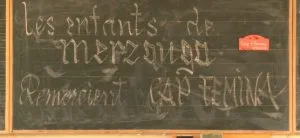 Les enfants de
merzouga
Remercient CAP FEMINA